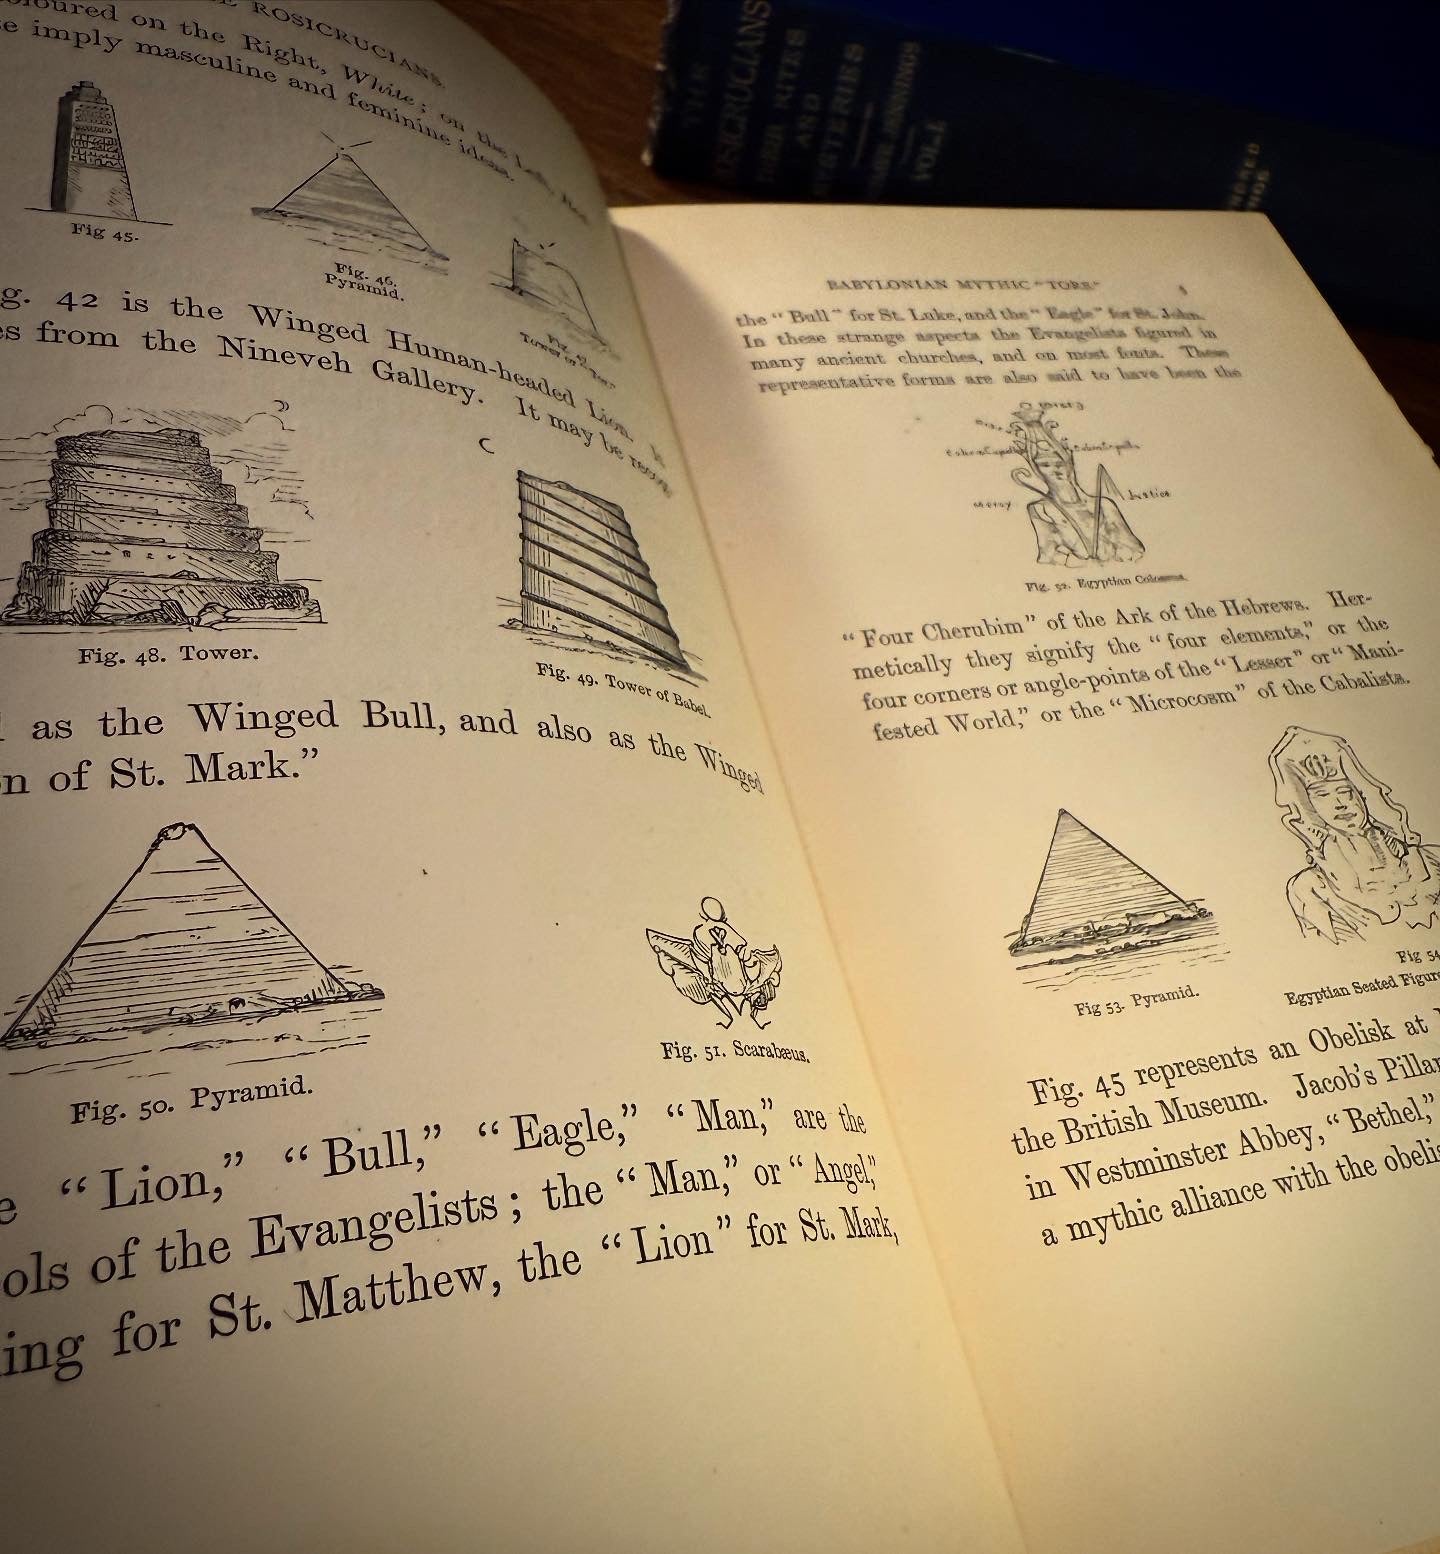 ROSICRUCIANS.
oloured on the Right, White; on the Left, Red
se imply masculine and feminine ideas.
Fig 45.
Fig. 46.
Pyramid.
Fig. 47.
Tower of
g. 42 is the Winged Human-headed Lion.
es from the Nineveh Gallery. It may be
Fig. 48. Tower.
Fig. 49. Tower of Babel.
as the Winged Bull, and also as the Winged
n of St. Mark.”
Fig. 50. Pyramid.
Fig. 51. Scarabæus.
e “Lion,” “Bull,” “Eagle,” “Man,” are the
ols of the Evangelists; the “Man,” or “Angel,”
ing for St. Matthew, the “Lion” for St. Mark,
BABYLONIAN MYTHIC “TORS”
the “Bull” for St. Luke, and the “Eagle” for St. John.
In these strange aspects the Evangelists figured in
many ancient churches, and on most fonts. These
representative forms are also said to have been the
Mercy
Justice
Fig. 52. Egyptian Colossus.
“Four Cherubim” of the Ark of the Hebrews. Her-
metically they signify the “four elements,” or the
four corners or angle-points of the “Lesser” or “Mani-
fested World,” or the “Microcosm” of the Cabalists.
Fig 53. Pyramid.
Fig 54
Egyptian Seated Figure
Fig. 45 represents an Obelisk at
the British Museum. Jacob’s Pillar
in Westminster Abbey, “Bethel,”
a mythic alliance with the obelis
THE
ROSICRUCIANS
THEIR RITES
AND
MYSTERIES
HARGRAVE JENNINGS
VOL.I.